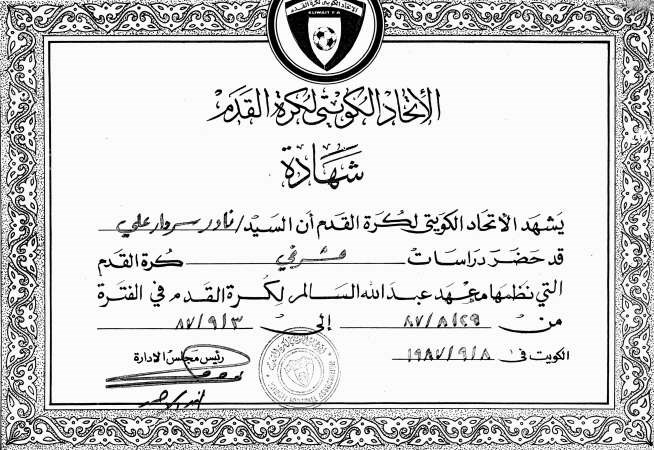 الاتحاد الكويتي لكرة القدم
KUWAIT F A
الاتحاد الكويتي لكرة القدم
شهادة
يشهد الاتحاد الكويتي لكرة القدم أن السيد / نادر سردار علي
قد حضر دراسات مشرفي كرة القدم
التي نظمها معهد عبد الله السالم لكرة القدم في الفترة
من ٨٧/٨/٢٩ إلى ٨٧/٩/٣
الكويت في ١٩٨٧/٩/٨
رئيس مجلس الادارة